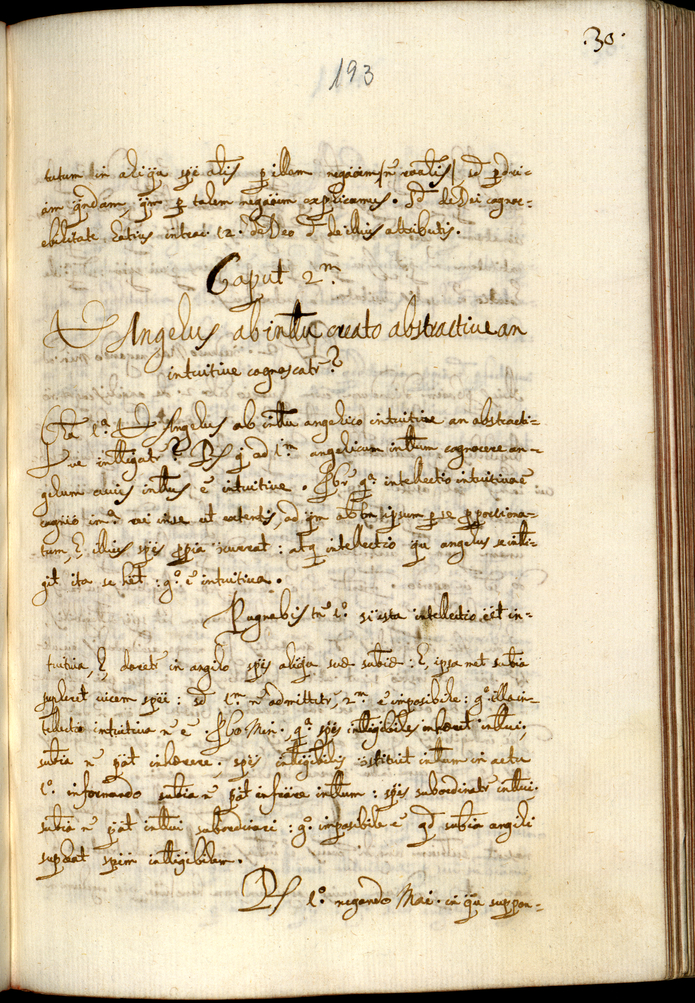 .30.
193
tutum in aliqu͂a spē alis p illam negaōīm/n̄ realis/ sd p
ām qndam, qm p talem negaōīm explicamus. Sd de Dei cognos-
cibilitate latius infra. l2. de Deo et de illius attributis.
Caput 2.m
Angelus ab intllu creato abstractive an
intuitive cognoscatr?
1.a Angelus ab intllu angelico intuitive an abstracti-
ve intlligatr? Rs q ad 1.m angelicum intllum cognoscere an-
gelum cuius intllus ē intuitive. Pbr qa. intellectio intuitiva ē
cognio im.a rei in se ut existentis, ad qm obtm ipsum p se pportiona-
tum, l illius spēs ppia currat: atq intellectio qua angelus se intlli-
git ita se het: go. ē intuitiva.
Pugnabis tn 1o. si ista intellectio eēt in-
tuitiva, l daretr in angelo spēs aliqua suæ subīæ: l, ipsa met subīa
supleret vicem spēi: sd 1.m n admittitr, 2.m ē imposibile: go. illa in-
tellectio intuitiva n ē. Pbo Min. qa. spēs intlligibiles inhæret intllui,
subīa n pāt inhærere. spēs intlligibilis constituit intllum in actu
1o. informando subīa n pāt infōrare intllum: spēs subordinatr intllui.
subīa n pāt intllui subordinari: go. imposibile ē qd subīa angeli
supleat spēm intlligibilem.
Rs 1o. negando Mai. in qua suppon-